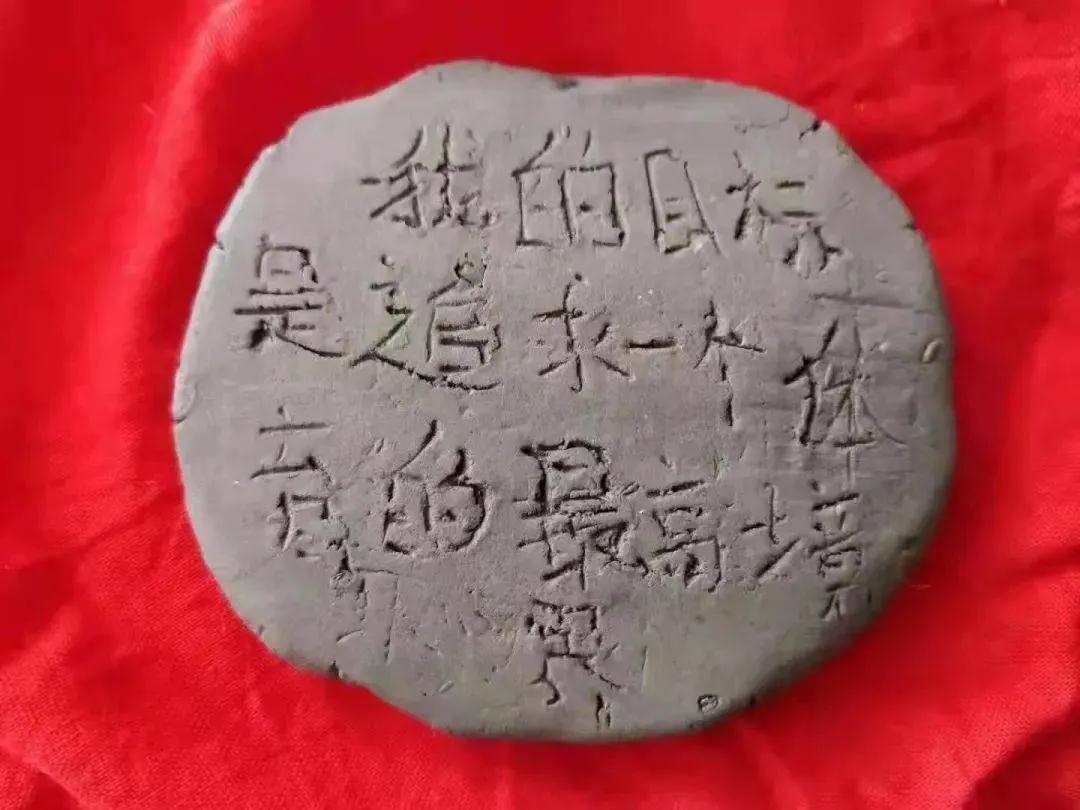 我的目标
是追求一个体
育的最高境
界